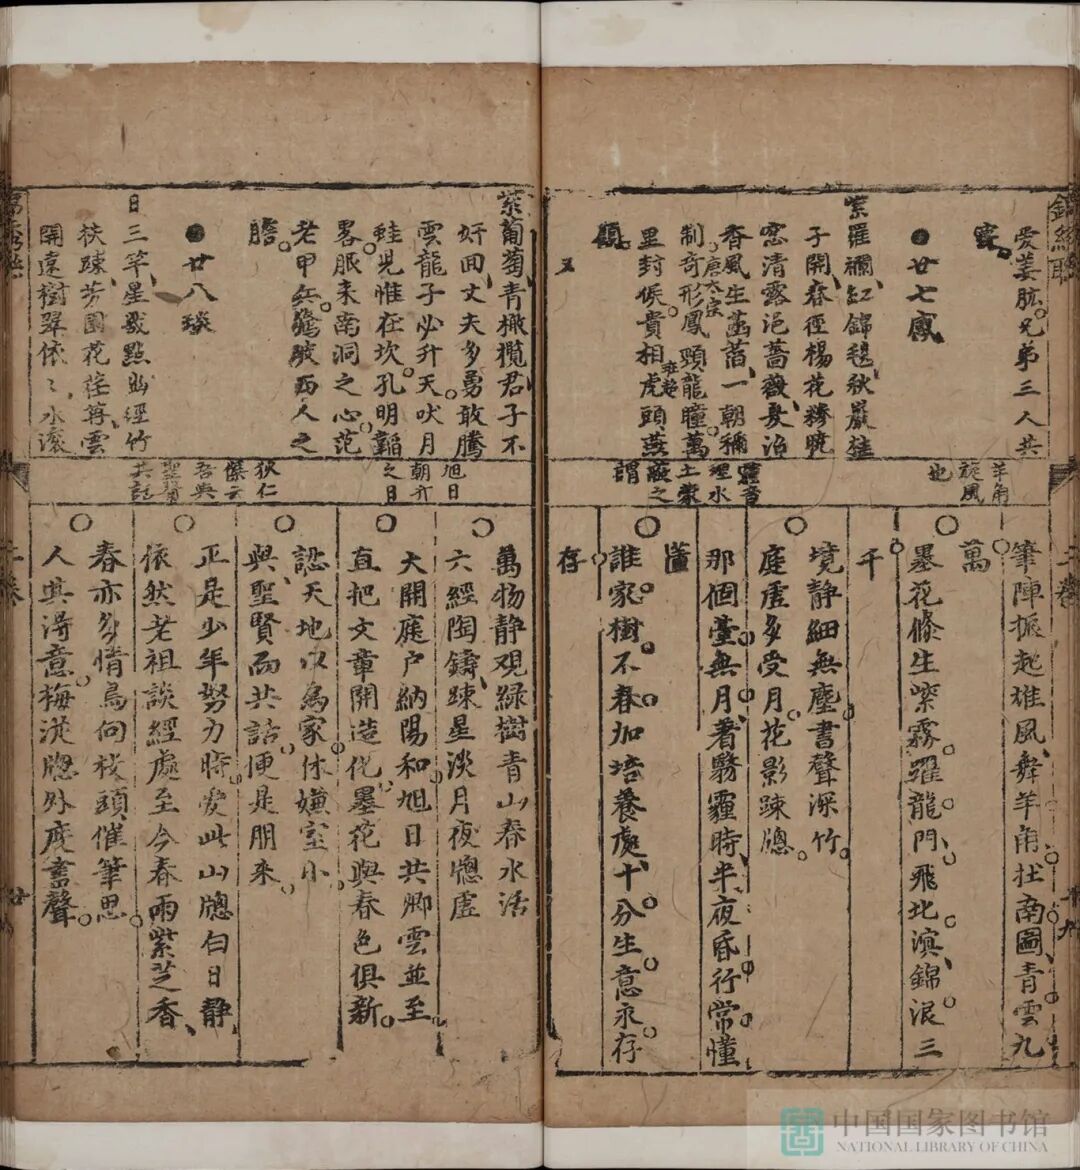 愛姜肱兄弟三人共
●廿七鳳
紫羅襴紅錦毯秋巖桂
子開春徑楊花糝曉
窓清露浥薔薇幾治
香風生菡萏一朝稱
制唐太宗奇形鳳頸龍瞳萬
里封侯貴相虎頭燕
頷
又
羊角
旋風
也
理水
土之
謂
筆陣振起雄風舞羊角扶南圖青雲九
萬
墨花條生紫霧羅龍門飛北溟錦浪三
千
境静細無塵書聲深竹
庭虛多受月花影踈牕
那個臺無月着霧霾時半夜昏行常懂
懂
誰家樹不春加培養處十分生意永存
存
紫葡萄青橄欖君子不
奸回丈夫多勇敢騰
雲龍子必升天吠月
蛙兒惟在坎孔明韜
畧服来南洞之心范
老甲兵驚破西人之
膽
●廿八琰
日三竿星幾點幽徑竹
扶踈芳園花荏苒雲
開遠樹翠依〻水滚
旭日
朝升
之日
狄仁
傑云
吾與
聖賢
共話
萬物静觀緑樹青山春水活
六經陶鑄踈星淡月夜牕虛
大開庭户納陽和旭日共卿雲並至
直把文章開造化墨花與春色俱新
認天地以為家休嫌室小
與聖賢而共話便是朋来
正是少年努力時愛此山牕白日静
依然老祖談經處至今春雨紫芝香
春亦多情鳥向枝頭催筆思
人其得意梅從牕外度書聲
中国国家图书馆
NATIONAL LIBRARY OF CHINA